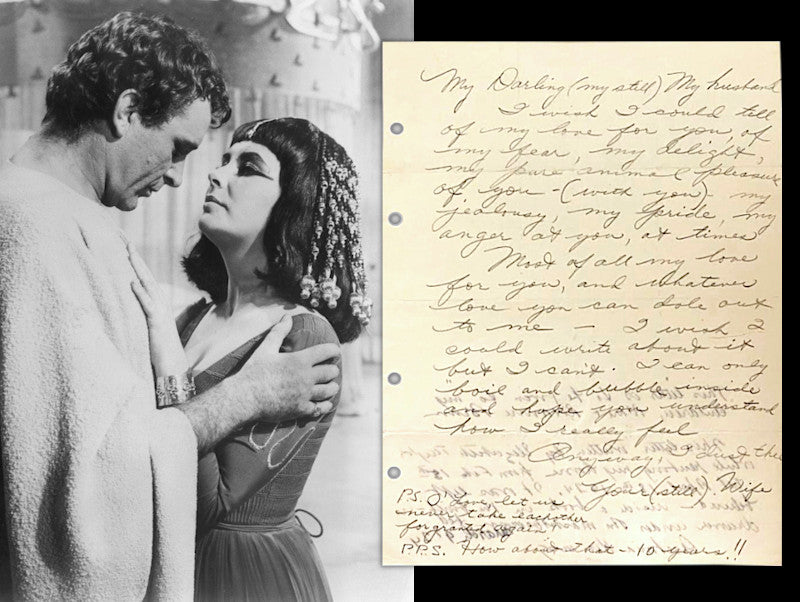 My Darling (my still) My husband
I wish I could tell
of my love for you, of
my fear, my delight,
my pure animal pleasure
of you - (with you), my
jealousy, my pride, my
anger at you, at times
Most of all my love
for you, and whatever
love you can dole out
to me – I wish I
could write about it
but I can't. I can only
"boil and bubble" inside
and hope you understand
how I really feel
Anyway I lust thee
Your (still) Wife
P.S. O' Love, let us
never take each other
for granted again
P.P.S. How about that - 10 years!!